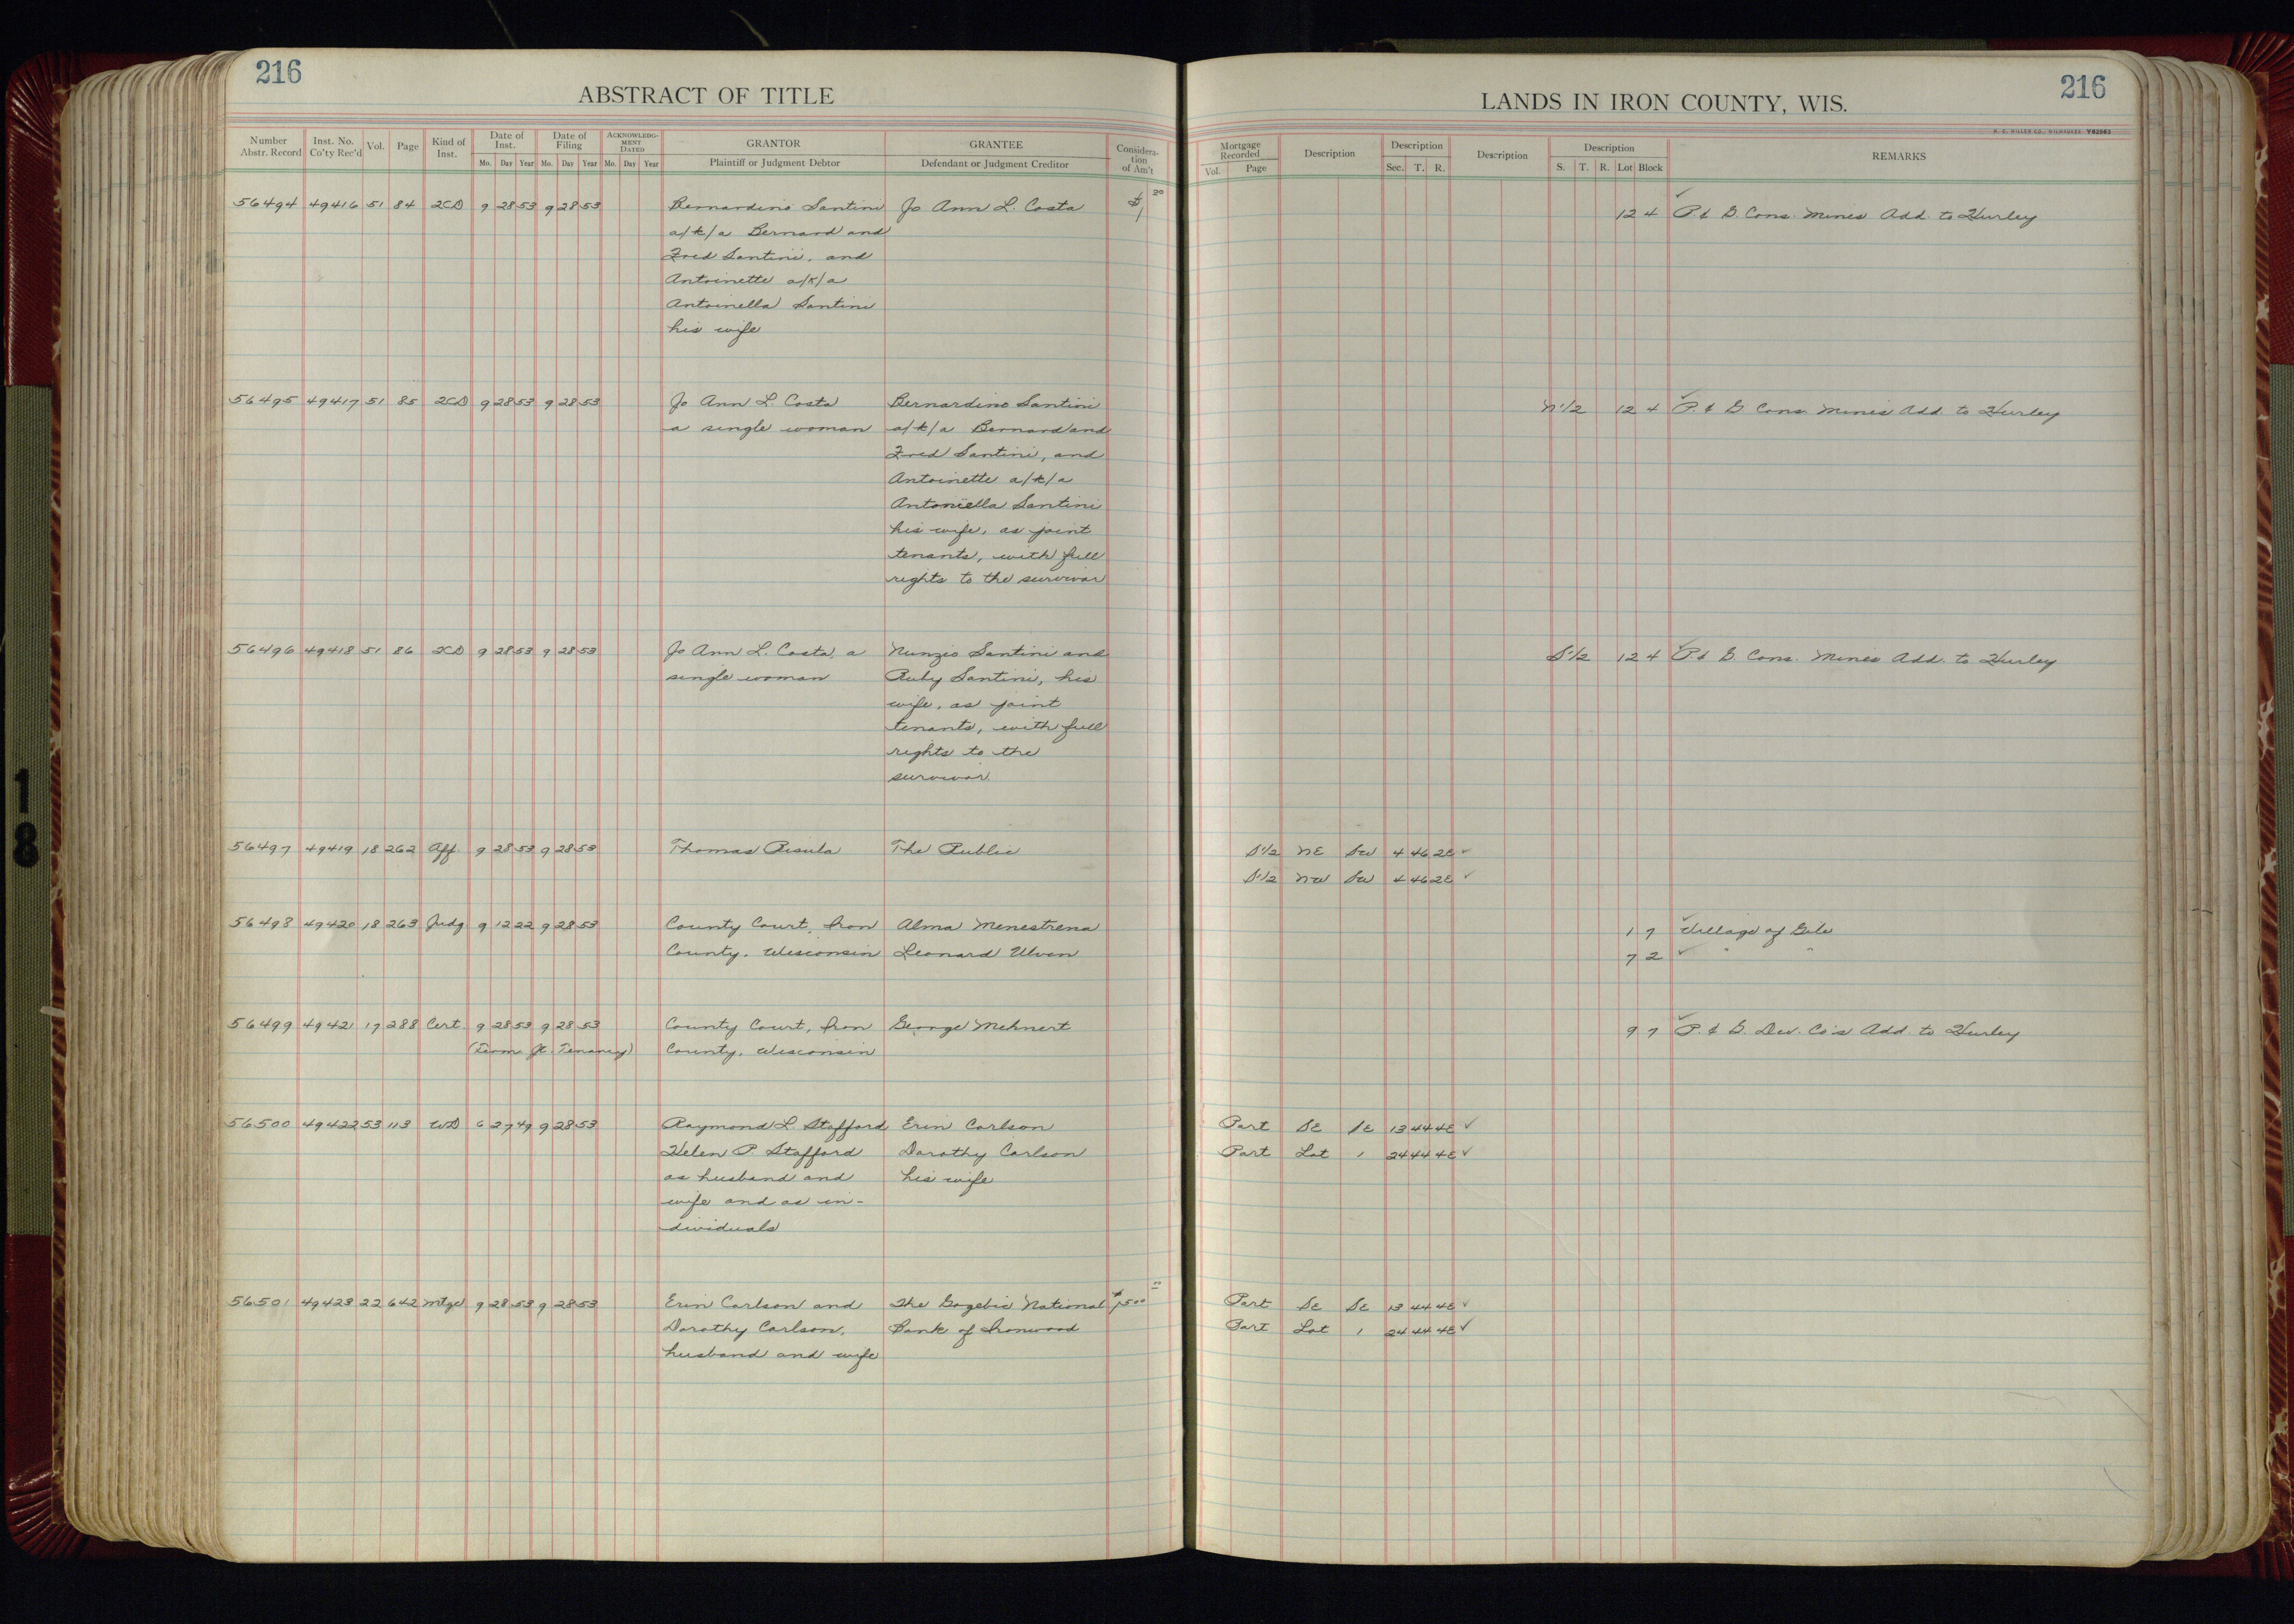 216
ABSTRACT OF TITLE
Number Abstr. Record | Inst. No. Co'ty Rec'd | Vol. | Page | Kind of Inst. | Date of Inst. Mo. Day Year | Date of Filing Mo. Day Year | ACKNOWLEDGMENT DATED Mo. Day Year | GRANTOR Plaintiff or Judgment Debtor | GRANTEE Defendant or Judgment Creditor | Consideration of Am't
56494 49416 51 84 2CD 9 28 53 9 28 53 Bernardino Santini Jo Ann L. Costa $1
a/k/a Bernard and
Fred Santini, and
Antoinette a/k/a
Antoinella Santini
his wife
56495 49417 51 85 2CD 9 28 53 9 28 53 Jo Ann L. Costa Bernardino Santini
a single woman a/k/a Bernard and
Fred Santini, and
Antoinette a/k/a
Antoniella Santini
his wife, as joint
tenants, with full
rights to the survivor
56496 49418 51 86 2CD 9 28 53 9 28 53 Jo Ann L. Costa, a Nunzio Santini and
single woman Ruby Santini, his
wife, as joint
tenants, with full
rights to the
survivor.
56497 49419 18 262 Aff. 9 28 53 9 28 53 Thomas Risula The Public
56498 49420 18 263 Judg 9 12 22 9 28 53 County Court, Iron Alma Menestrena
County, Wisconsin Leonard Ulven
56499 49421 17 288 Cert. 9 28 53 9 28 53 County Court, Iron George Mehnert
(Term. Jt. Tenancy) County, Wisconsin
56500 49422 53 113 WD 6 27 49 9 28 53 Raymond L. Stafford Erin Carlson
Helen P. Stafford Dorothy Carlson
as husband and his wife
wife and as in-
dividuals
56501 49423 22 642 Mtge 9 28 53 9 28 53 Erin Carlson and The Gogebic National $1500
Dorothy Carlson, Bank of Ironwood
husband and wife
216
LANDS IN IRON COUNTY, WIS.
H. C. MILLER CO., MILWAUKEE Y62563
Mortgage Recorded Vol. Page | Description | Description Sec. T. R. | Description | Description S. T. R. Lot Block | REMARKS
12 4 P. & G. Cons. Mines Add. to Hurley
N1/2 12 4 P. & G Cons. Mines Add. to Hurley
S1/2 12 4 P. & G. Cons. Mines Add. to Hurley
S1/2 NE SW 4 46 2E ✓
S1/2 NW SW 4 46 2E ✓
1 7 Village of Gile
7 2 " "
9 7 P. & G. Dev. Co's Add. to Hurley
Part SE SE 13 44 4E ✓
Part Lot 1 24 44 4E ✓
Part SE SE 13 44 4E ✓
Part Lot 1 24 44 4E ✓
18